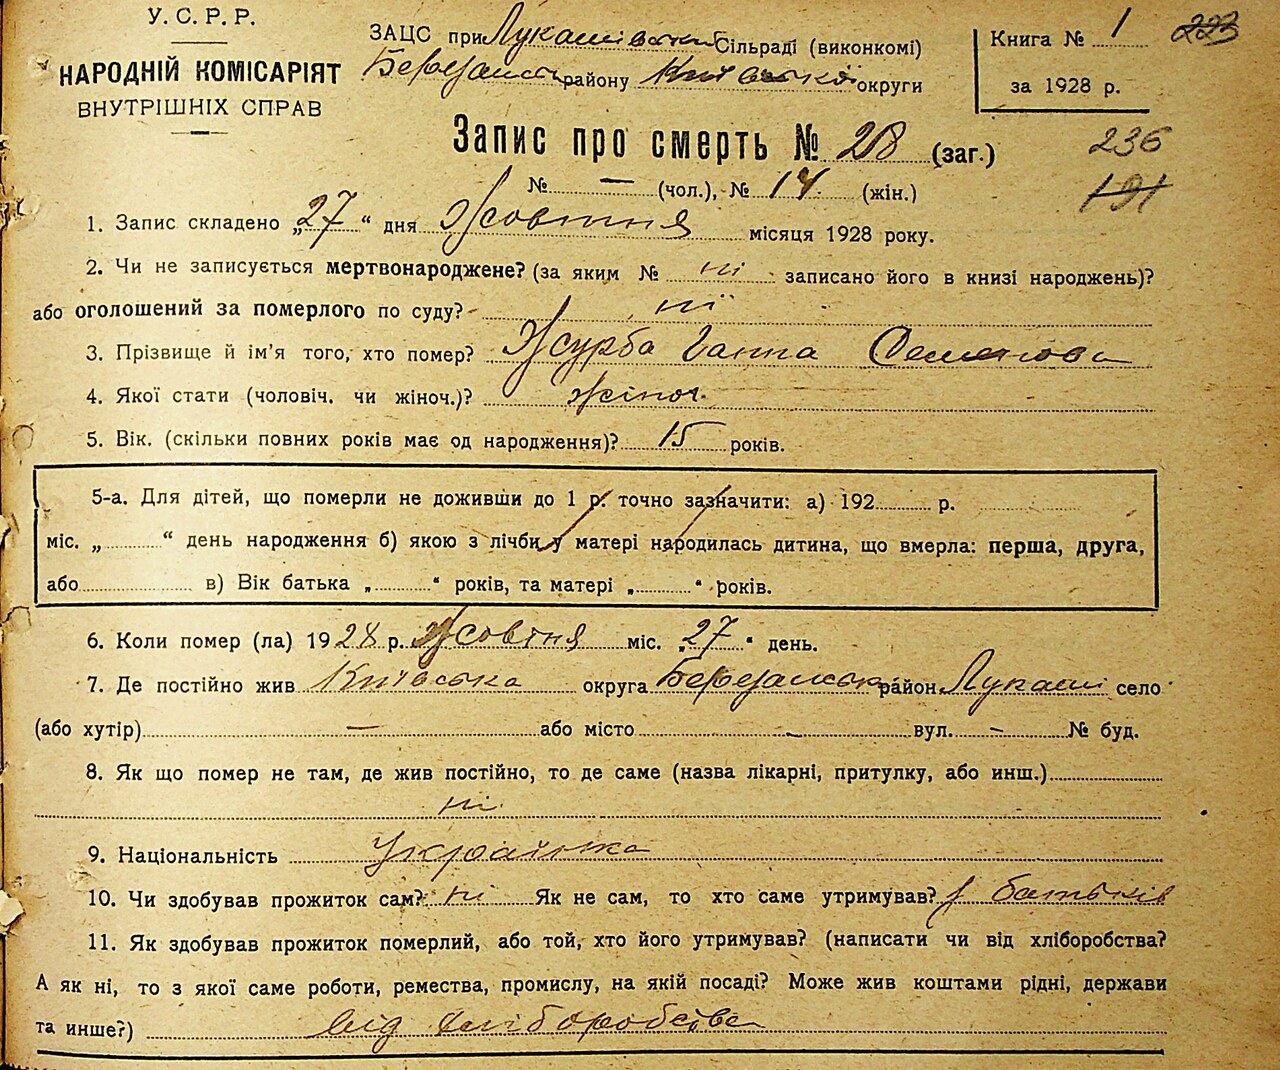 У. С. Р. Р.
НАРОДНІЙ КОМІСАРІЯТ
ВНУТРІШНІХ СПРАВ
ЗАЦС при Лукашівській Сільраді (виконкомі)
Березанськ району Київської округи
Книга № 1
за 1928 р.
223
Запис про смерть № 28 (заг.)
236
№ — (чол.), № 14 (жін.)
191
1. Запис складено „27“ дня Жовтня місяця 1928 року.
2. Чи не записується мертвонароджене? (за яким № ні записано його в книзі народжень)?
або оголошений за померлого по суду? ні
3. Прізвище й ім'я того, хто помер? Журба Ганна Семенова
4. Якої стати (чоловіч. чи жіноч.)? жіноч.
5. Вік. (скільки повних років має од народження)? 15 років.
5-а. Для дітей, що померли не доживши до 1 р. точно зазначити: а) 192 р.
міс. „ “ день народження б) якою з лічби у матері народилась дитина, що вмерла: перша, друга,
або в) Вік батька „ “ років, та матері „ “ років.
6. Коли помер (ла) 1928 р. Жовтня міс. „27“ день.
7. Де постійно жив Київська округа Березанськ район Лукаші село
(або хутір) — або місто — вул. — № буд.
8. Як що помер не там, де жив постійно, то де саме (назва лікарні, притулку, або инш.)
ні
9. Національність Українка
10. Чи здобував прожиток сам? ні Як не сам, то хто саме утримував? у батьків
11. Як здобував прожиток померлий, або той, хто його утримував? (написати чи від хліборобства?
А як ні, то з якої саме роботи, ремества, промислу, на якій посаді? Може жив коштами рідні, держави
та инше?) від хліборобства